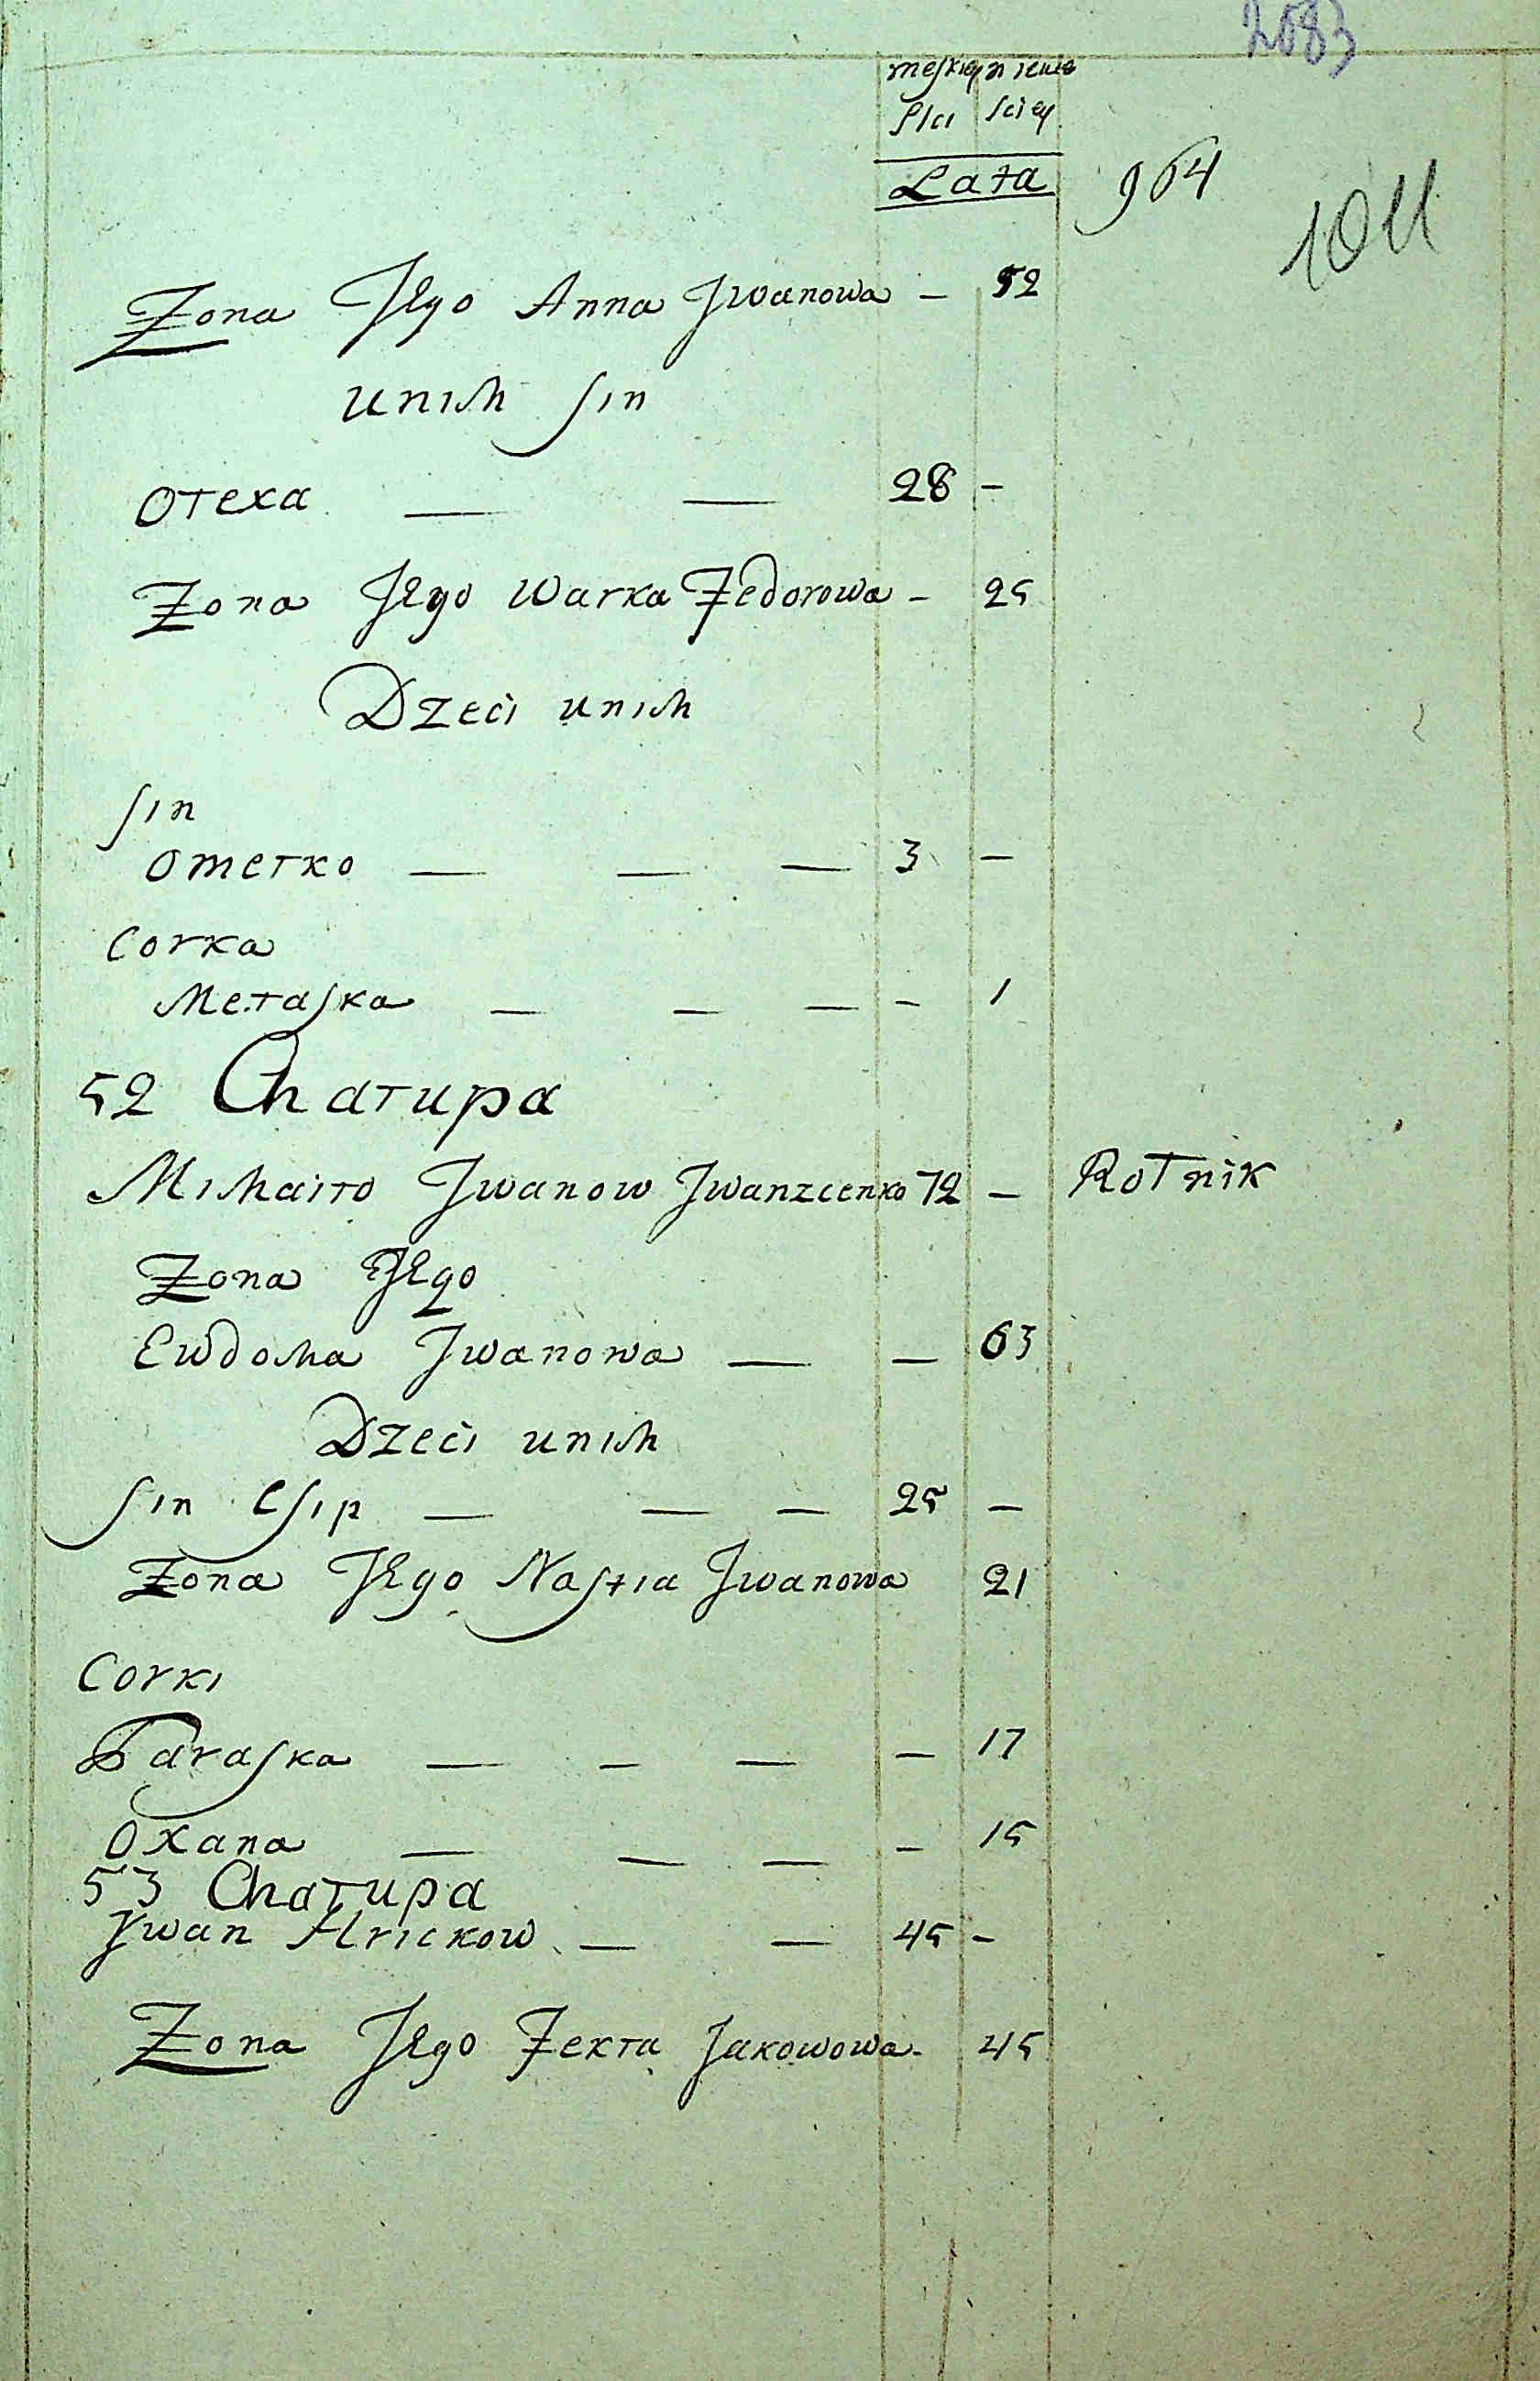 2083
męskiey zienie
Płci sciey
Lata 964
1011
Zona Jego Anna Jwanowa - 52
unich sin
Ołexa — — 28 -
Zona Jego Warka Fedorowa - 25
Dzeci unich
sin
Omełko — — — 3 -
Corka
Mełaſka — — — - 1
52 Chałupa
Michaiło Jwanow Jwanzcenko 72 - Rołnik
Zona Jego
Ewdocha Jwanowa — — 63
Dzeci unich
sin Esip — — — 25 -
Zona Jego Nastia Jwanowa 21
Corki
Paraſka — — — - 17
Oxana — — — - 15
53 Chałupa
Jwan Hrickow — — 45 -
Zona Jego Fekła Jakowowa - 45